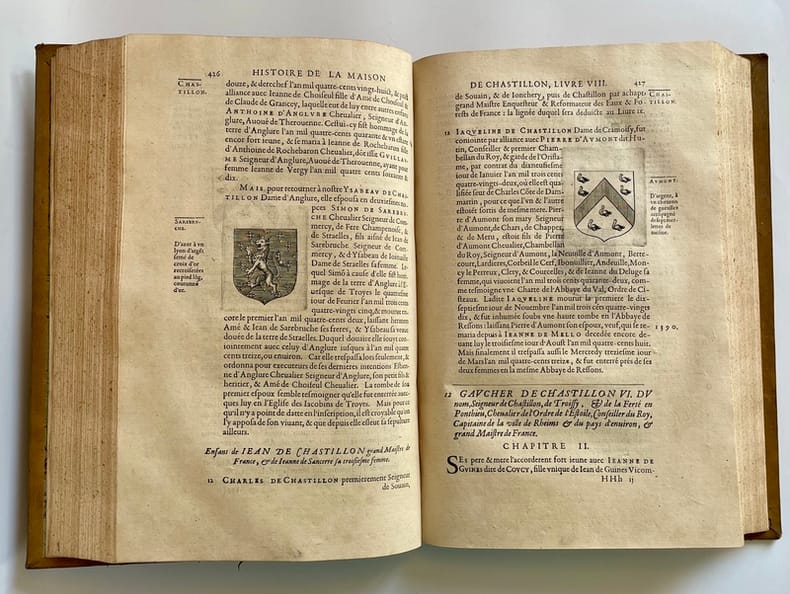 426
HISTOIRE DE LA MAISON
CHAS-
TILLON.
douze, & derechef l'an mil quatre-cents vingt-huict, & prist
alliance auec Ieanne de Choiseul fille d'Amé de Choiseul &
de Claude de Grancey, laquelle eut de luy entre autres enfans
ANTHOINE D'ANGLVRE Cheualier, Seigneur d'An-
glure, Auoué de Therouenne. Cestui-cy fist hommage de la
terre d'Anglure l'an mil quatre-cents quarante & vn estant
encor fort ieune, & se maria à Ieanne de Rochebaron fille
d'Anthoine de Rochebaron Cheualier, dõt issit GVILLAV-
ME Seigneur d'Anglure, Auoué de Therouenne, ayant pour
femme Ieanne de Vergy l'an mil quatre cents soixante &
dix.
MAIS pour retourner à nostre YSABEAV DE CHAS-
TILLON Dame d'Anglure, elle espousa en deuxiesmes no-
pces SIMON DE SAREBRV-
CHE Cheualier Seigneur de Com-
mercy, de Fere Champenoise, &
de Straelles, fils aisné de Iean de
Sarebruche Seigneur de Com-
mercy, & d'Ysabeau de Ioinuille
Dame de Straelles sa femme. Le-
quel Simõ à cause d'elle fist hom-
mage de la terre d'Anglure à l'E-
uesque de Troyes le quatriesme
iour de Feurier l'an mil trois cens
quatre-vingts cinq, & mourut en-
SAREBRV-
CHE.
D'azur à vn
lyon d'argẽt
semé de
croix d'or
recroisettées
au pied fiché,
couronné
d'or.
core le premier l'an mil quatre-cents deux, laissant heritiers
Amé & Iean de Sarebruche ses freres, & Ysabeau sa veuue
douée de la terre de Straelles. Duquel douaire elle iouyt con-
iointement auec celuy d'Anglure iusques à l'an mil quatre-
cents treize, ou enuiron. Car elle trespassa lors seulement, &
ordonna pour executeurs de ses dernieres intentions Estien-
ne d'Anglure Cheualier Seigneur d'Anglure, son petit fils &
heritier, & Amé de Choiseul Cheualier. La tombe de son
premier espoux semble tesmoigner qu'elle fut enterrée auec-
ques luy en l'Eglise des Iacobins de Troyes. Mais pour ce
qu'il n'y a point de datte en l'inscription, il est croyable qu'on
l'y apposa de son viuant, & que depuis elle esleut sa sepulture
ailleurs.
Enfans de IEAN DE CHASTILLON grand Maistre de
France, & de Ieanne de Sancerre sa troisiesme femme.
12 CHARLES DE CHASTILLON premierement Seigneur
de Souain,
DE CHASTILLON, LIVRE VIII.
427
CHAS-
TILLON.
de Souain, & de Ionchery, puis de Chastillon par achapt,
grand Maistre Enquesteur & Reformateur des Eaux & Fo-
rests de France: la lignée duquel sera deduicte au Liure ix.
12 IAQVELINE DE CHASTILLON Dame de Cramoisy, fut
conioincte par alliance auec PIERRE D'AVMONT dit Hu-
tin, Conseiller & premier Cham-
bellan du Roy, & garde de l'Orisla-
me, par contract du dixneufiesme
iour de Ianuier l'an mil trois cents
quatre-vingts-deux, où elle est qua-
lifiée sœur de Charles Côte de Dam-
martin, pour ce que l'vn & l'autre
estoit sortis de mesme mere. Pierre
d'Aumont son mary Seigneur
d'Aumont, de Chars, de Chappes,
& de Meru, estoit fils de Pierre
d'Aumont Cheualier, Chambellan
AVMONT.
D'argent, à
vn cheuron
de gueulles
accompagné
de sept mer-
lettes de
mesme.
du Roy, Seigneur d'Aumont, la Neuuille d'Aumont, Berte-
court, Lardieres, Corbeille Cerf, Ibouuillier, Andeuille, Mon-
cy le Perreux, Clery, & Courcelles, & de Ieanne du Deluge sa
femme, qui viuoient l'an mil trois cents quarante-deux, com-
me tesmoigne vne Chartre de l'Abbaye du Val, Ordre de Ci-
steaux. Ladite IAQVELINE mourut la premiere le dix-
septiesme iour de Nouembre l'an mil trois cẽs quatre-vingts
dix, & fut inhumée soubs vne haute tombe en l'Abbaye de
Ressons: laissant Pierre d'Aumont son espoux, veuf, qui se re-
1390.
maria depuis à IEANNE DE MELLO decedée encore de-
uant luy le troisiesme iour d'Aoust l'an mil quatre-cents huit.
Mais finalement il trespassa aussi le Mercredy treziesme iour
de Mars l'an mil quatre-cents treize, & fut enterré prés de ses
deux femmes en la mesme Abbaye de Ressons.
12 GAVCHER DE CHASTILLON VI. DV
nom, Seigneur de Chastillon, de Troissy, & de la Ferté en
Ponthieu, Cheualier de l'Ordre de l'Estoile, Conseiller du Roy,
Capitaine de la ville de Rheims & du pays d'enuiron, &
grand Maistre de France.
CHAPITRE II.
SES pere & mere l'accorderent fort ieune auec IEANNE DE
GVINES dite de COVCY, fille vnique de Iean de Guines Vicom-
HHh ij